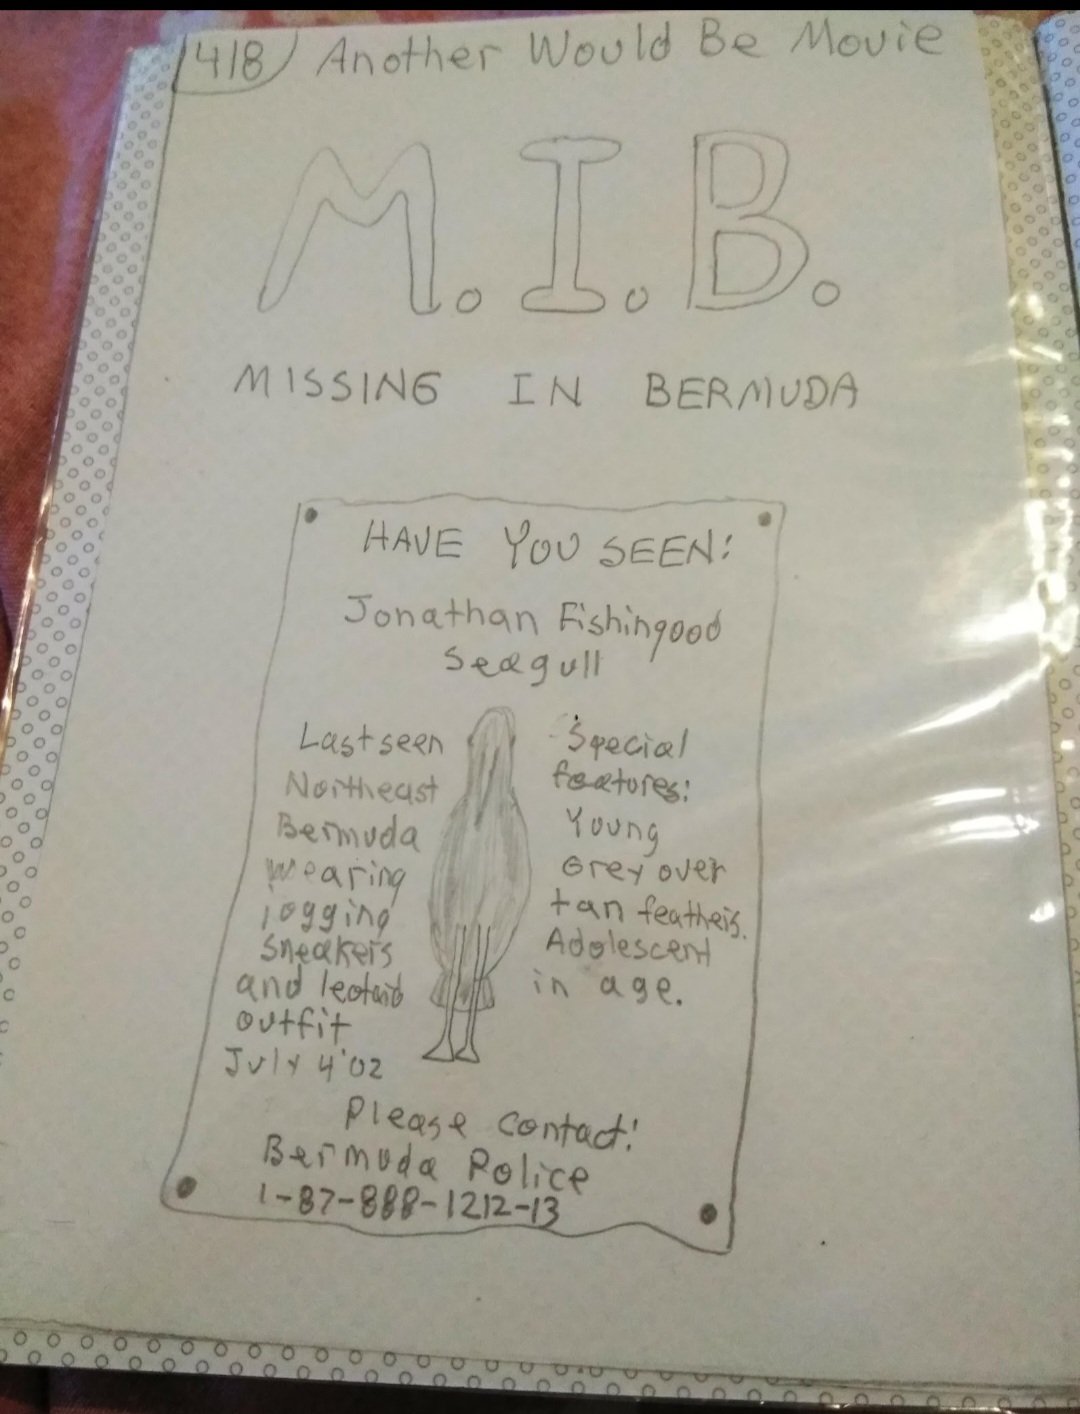 418 Another Would Be Movie
M.I.B.
MISSING IN BERMUDA
HAVE YOU SEEN:
Jonathan Fishingood
Seagull
Last seen
Northeast
Bermuda
wearing
jogging
sneakers
and leotard
outfit
July 4 '02
Special
features:
Young
Grey over
tan feathers.
Adolescent
in age.
Please contact:
Bermuda Police
1-87-888-1212-13